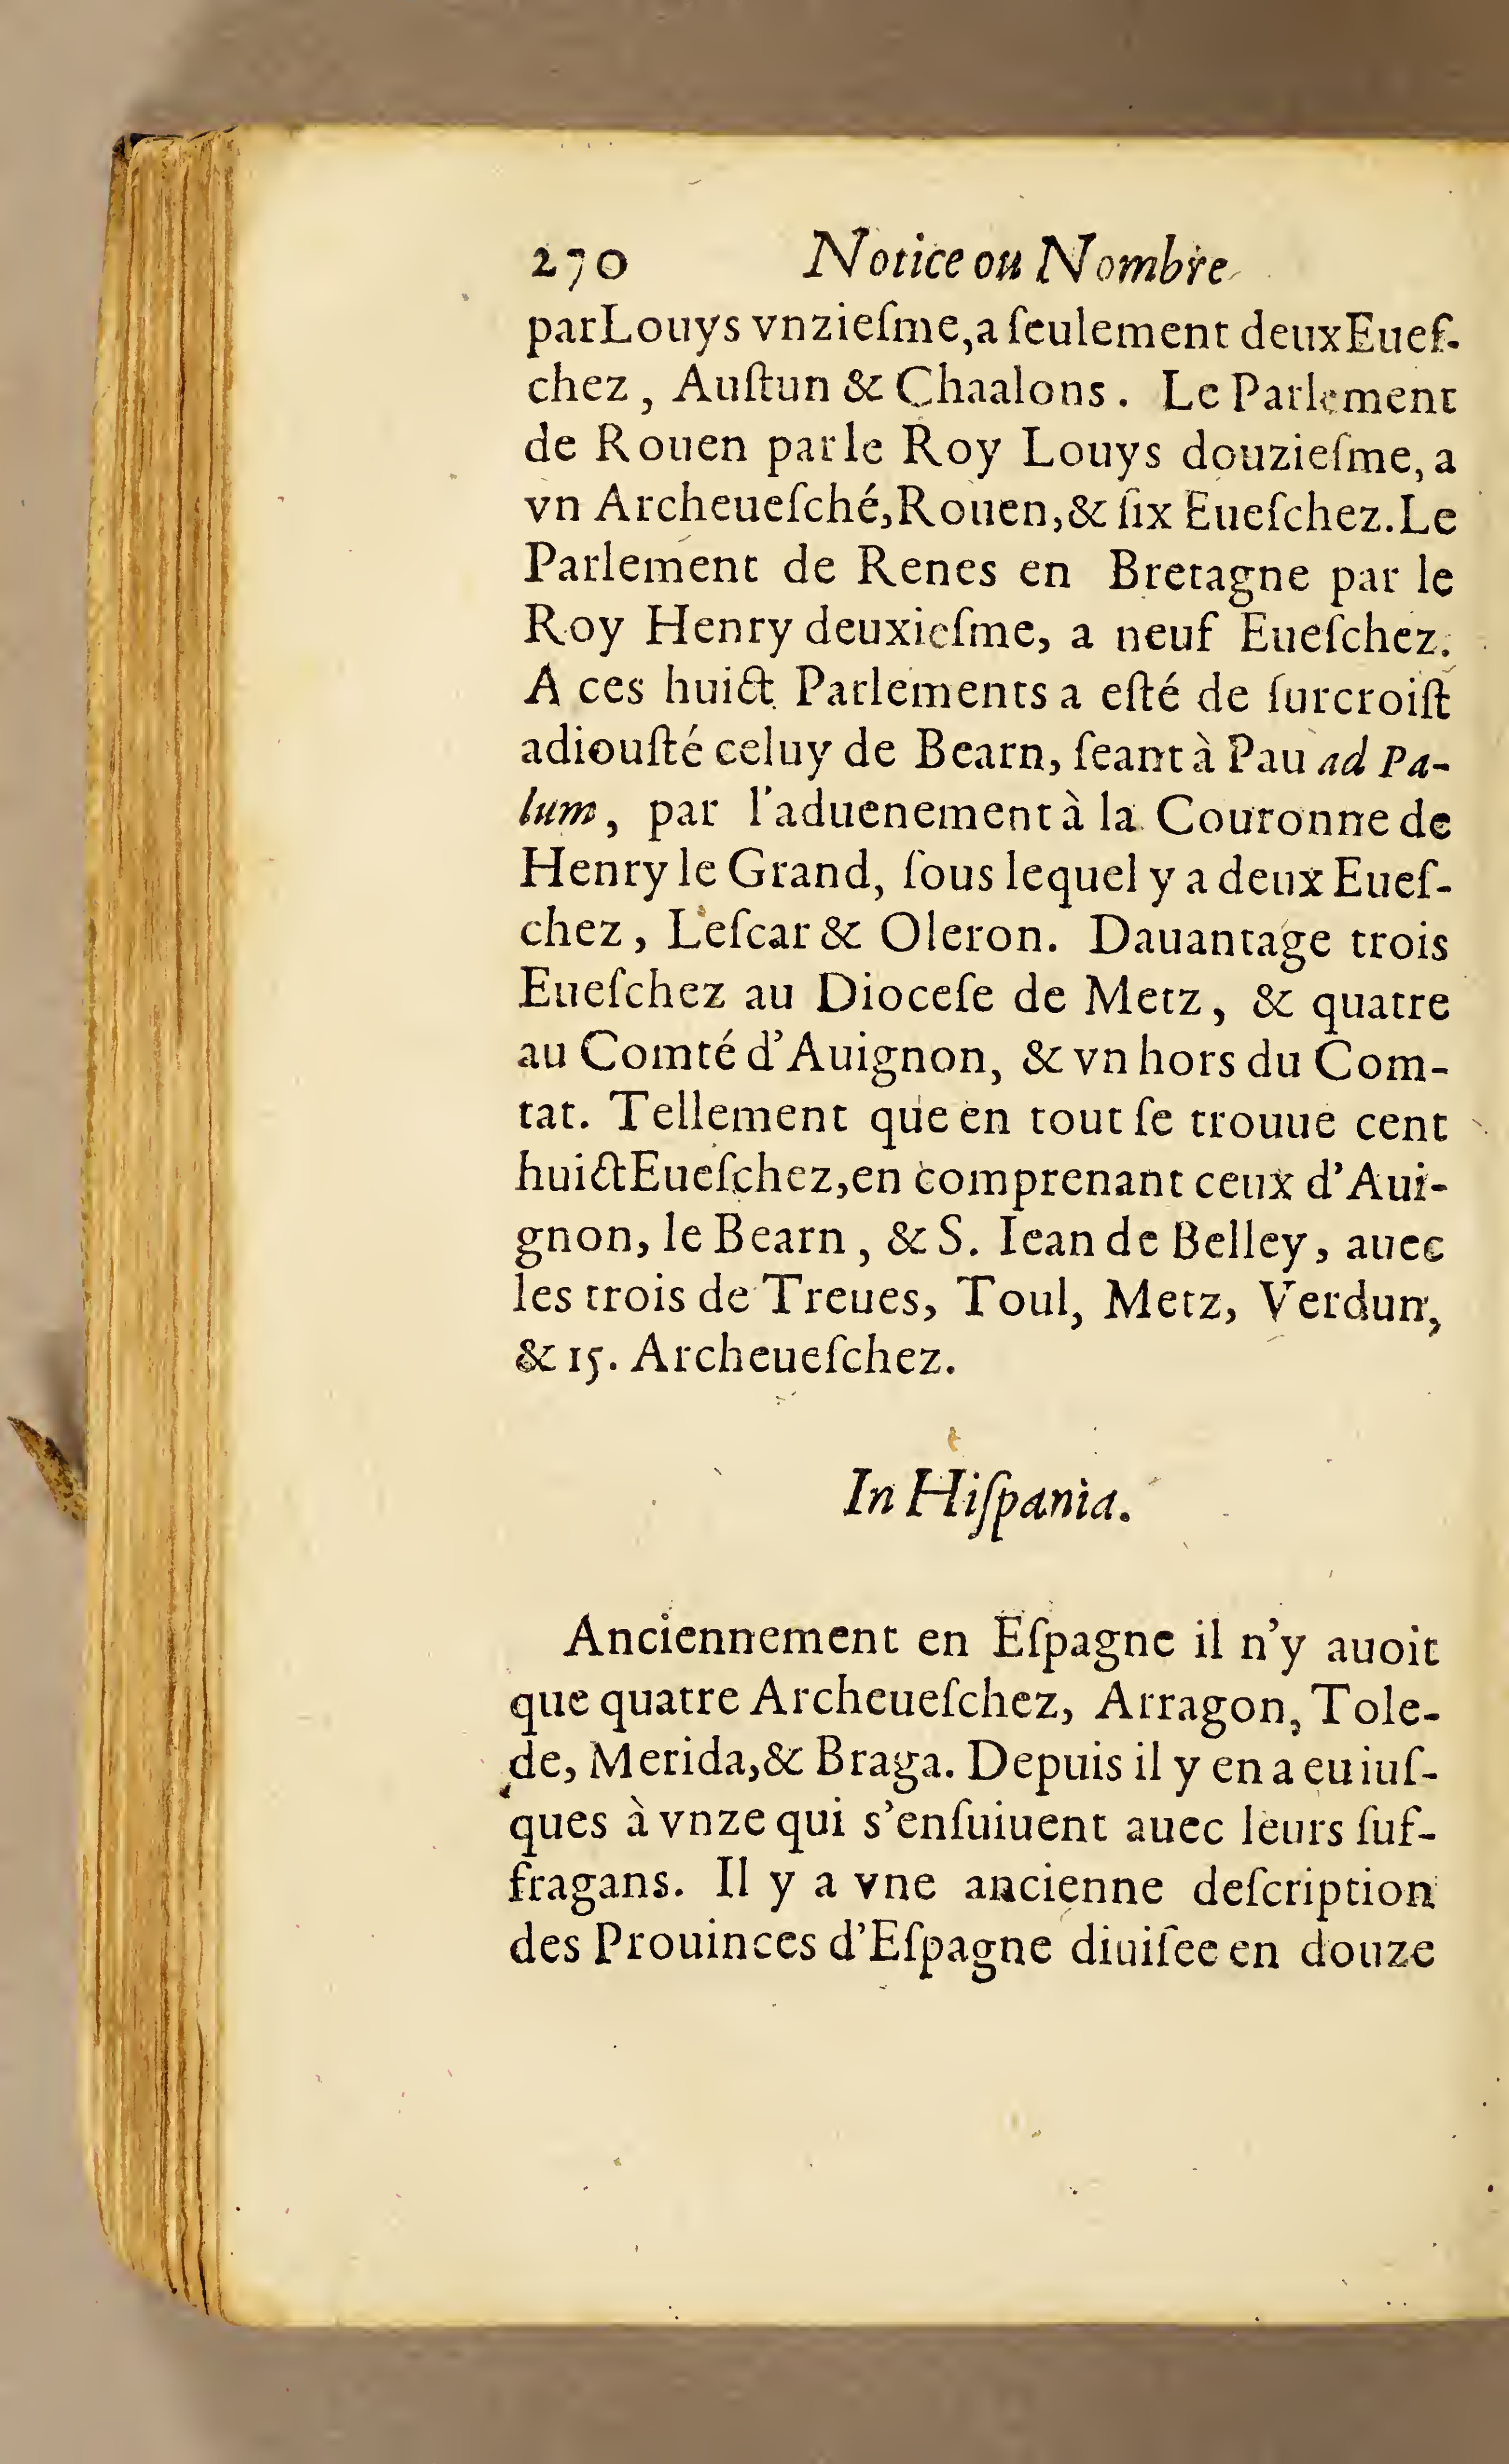 270 Notice ou Nombre
par Louys vnzieſme, a ſeulement deux Eueſ-
chez, Auſtun & Chaalons. Le Parlement
de Rouen par le Roy Louys douzieſme, a
vn Archeueſché, Rouen, & ſix Eueſchez. Le
Parlement de Renes en Bretagne par le
Roy Henry deuxieſme, a neuf Eueſchez.
A ces huict Parlements a eſté de ſurcroiſt
adiouſté celuy de Bearn, ſeant à Pau ad Pa-
lum, par l'aduenement à la Couronne de
Henry le Grand, ſous lequel y a deux Eueſ-
chez, Leſcar & Oleron. Dauantage trois
Eueſchez au Dioceſe de Metz, & quatre
au Comté d'Auignon, & vn hors du Com-
tat. Tellement que en tout ſe trouue cent
huict Eueſchez, en comprenant ceux d'Aui-
gnon, le Bearn, & S. Iean de Belley, auec
les trois de Treues, Toul, Metz, Verdun,
& 15. Archeueſchez.
In Hiſpania.
Anciennement en Eſpagne il n'y auoit
que quatre Archeueſchez, Arragon, Tole-
de, Merida, & Braga. Depuis il y en a eu iuſ-
ques à vnze qui s'enſuiuent auec leurs ſuf-
fragans. Il y a vne ancienne deſcription
des Prouinces d'Eſpagne diuiſee en douze